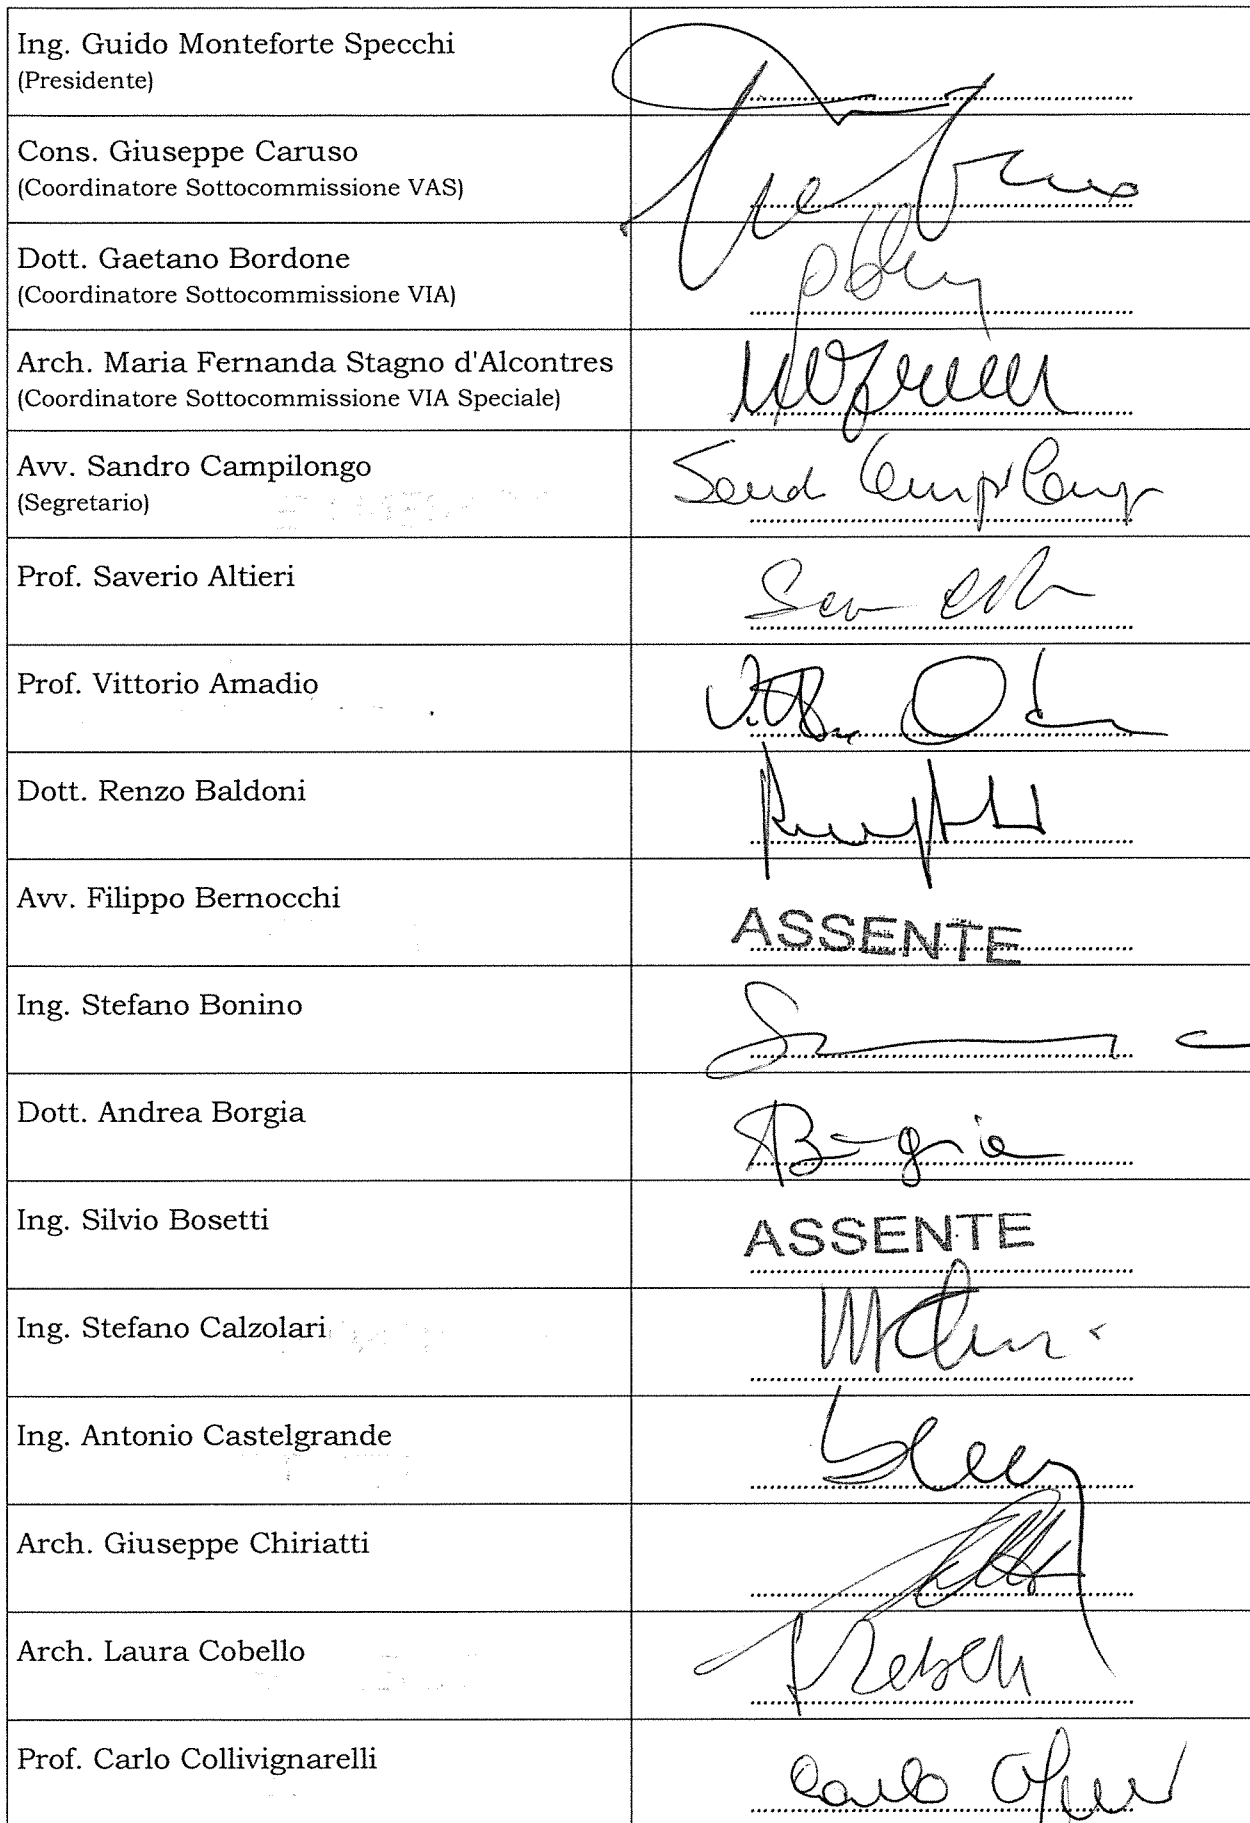 Ing. Guido Monteforte Specchi
(Presidente)
Cons. Giuseppe Caruso
(Coordinatore Sottocommissione VAS)
Dott. Gaetano Bordone
(Coordinatore Sottocommissione VIA)
Arch. Maria Fernanda Stagno d'Alcontres
(Coordinatore Sottocommissione VIA Speciale)
Avv. Sandro Campilongo
(Segretario)
Prof. Saverio Altieri
Prof. Vittorio Amadio
Dott. Renzo Baldoni
Avv. Filippo Bernocchi
ASSENTE
Ing. Stefano Bonino
Dott. Andrea Borgia
Ing. Silvio Bosetti
ASSENTE
Ing. Stefano Calzolari
Ing. Antonio Castelgrande
Arch. Giuseppe Chiriatti
Arch. Laura Cobello
Prof. Carlo Collivignarelli
Carlo